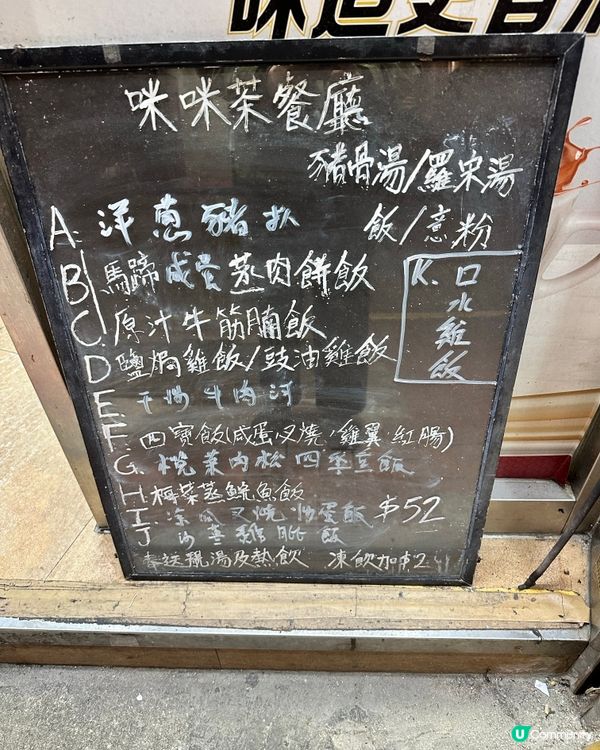 味道更香
咪咪茶餐廳
豬骨湯/羅宋湯
A. 洋蔥豬扒 飯/意粉
B 馬蹄咸蛋蒸肉餅飯
C. 原汁牛筋腩飯
D 鹽焗雞飯/豉油雞飯
E. 干炒牛肉河
F. 四寶飯(咸蛋,叉燒,雞翼,紅腸)
G. 欖菜肉松四季豆飯
H. 梅菜蒸鯇魚飯
I. 涼瓜叉燒炒蛋飯 $52
J 沙嗲雞扒飯
奉送餐湯及熱飲 凍飲加$2
K. 口水雞飯
U Community